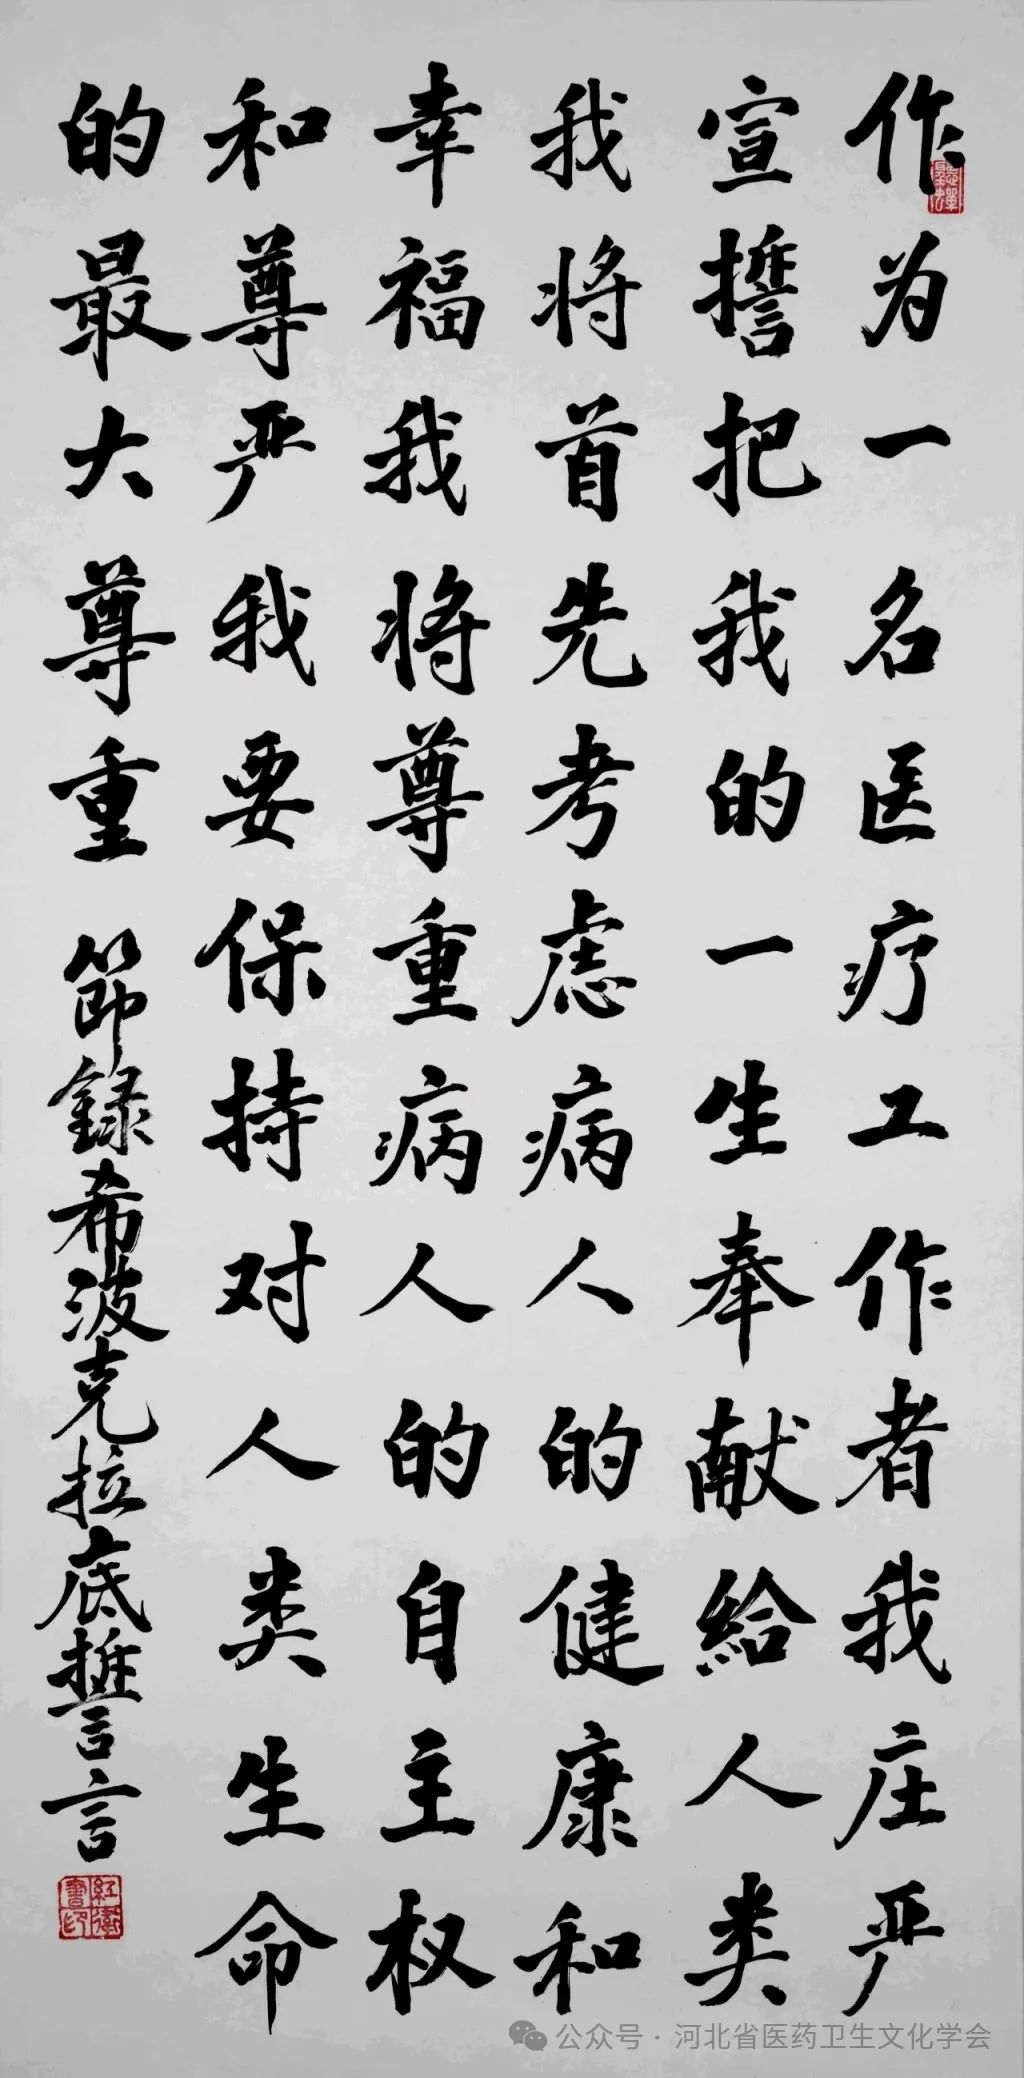 作为一名医疗工作者我庄严
宣誓把我的一生奉献給人类
我将首先考虑病人的健康和
幸福我将尊重病人的自主权
和尊严我要保持对人类生命
的最大尊重
節録希波克拉底誓言
红衛書印
公众号·河北省医药卫生文化学会